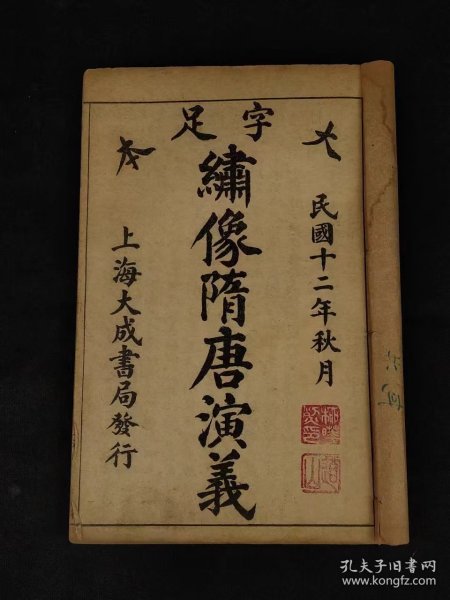 足字
大
民國十二年秋月
繡像隋唐演義
上海大成書局發行
孔夫子旧书网
www.kongfz.com